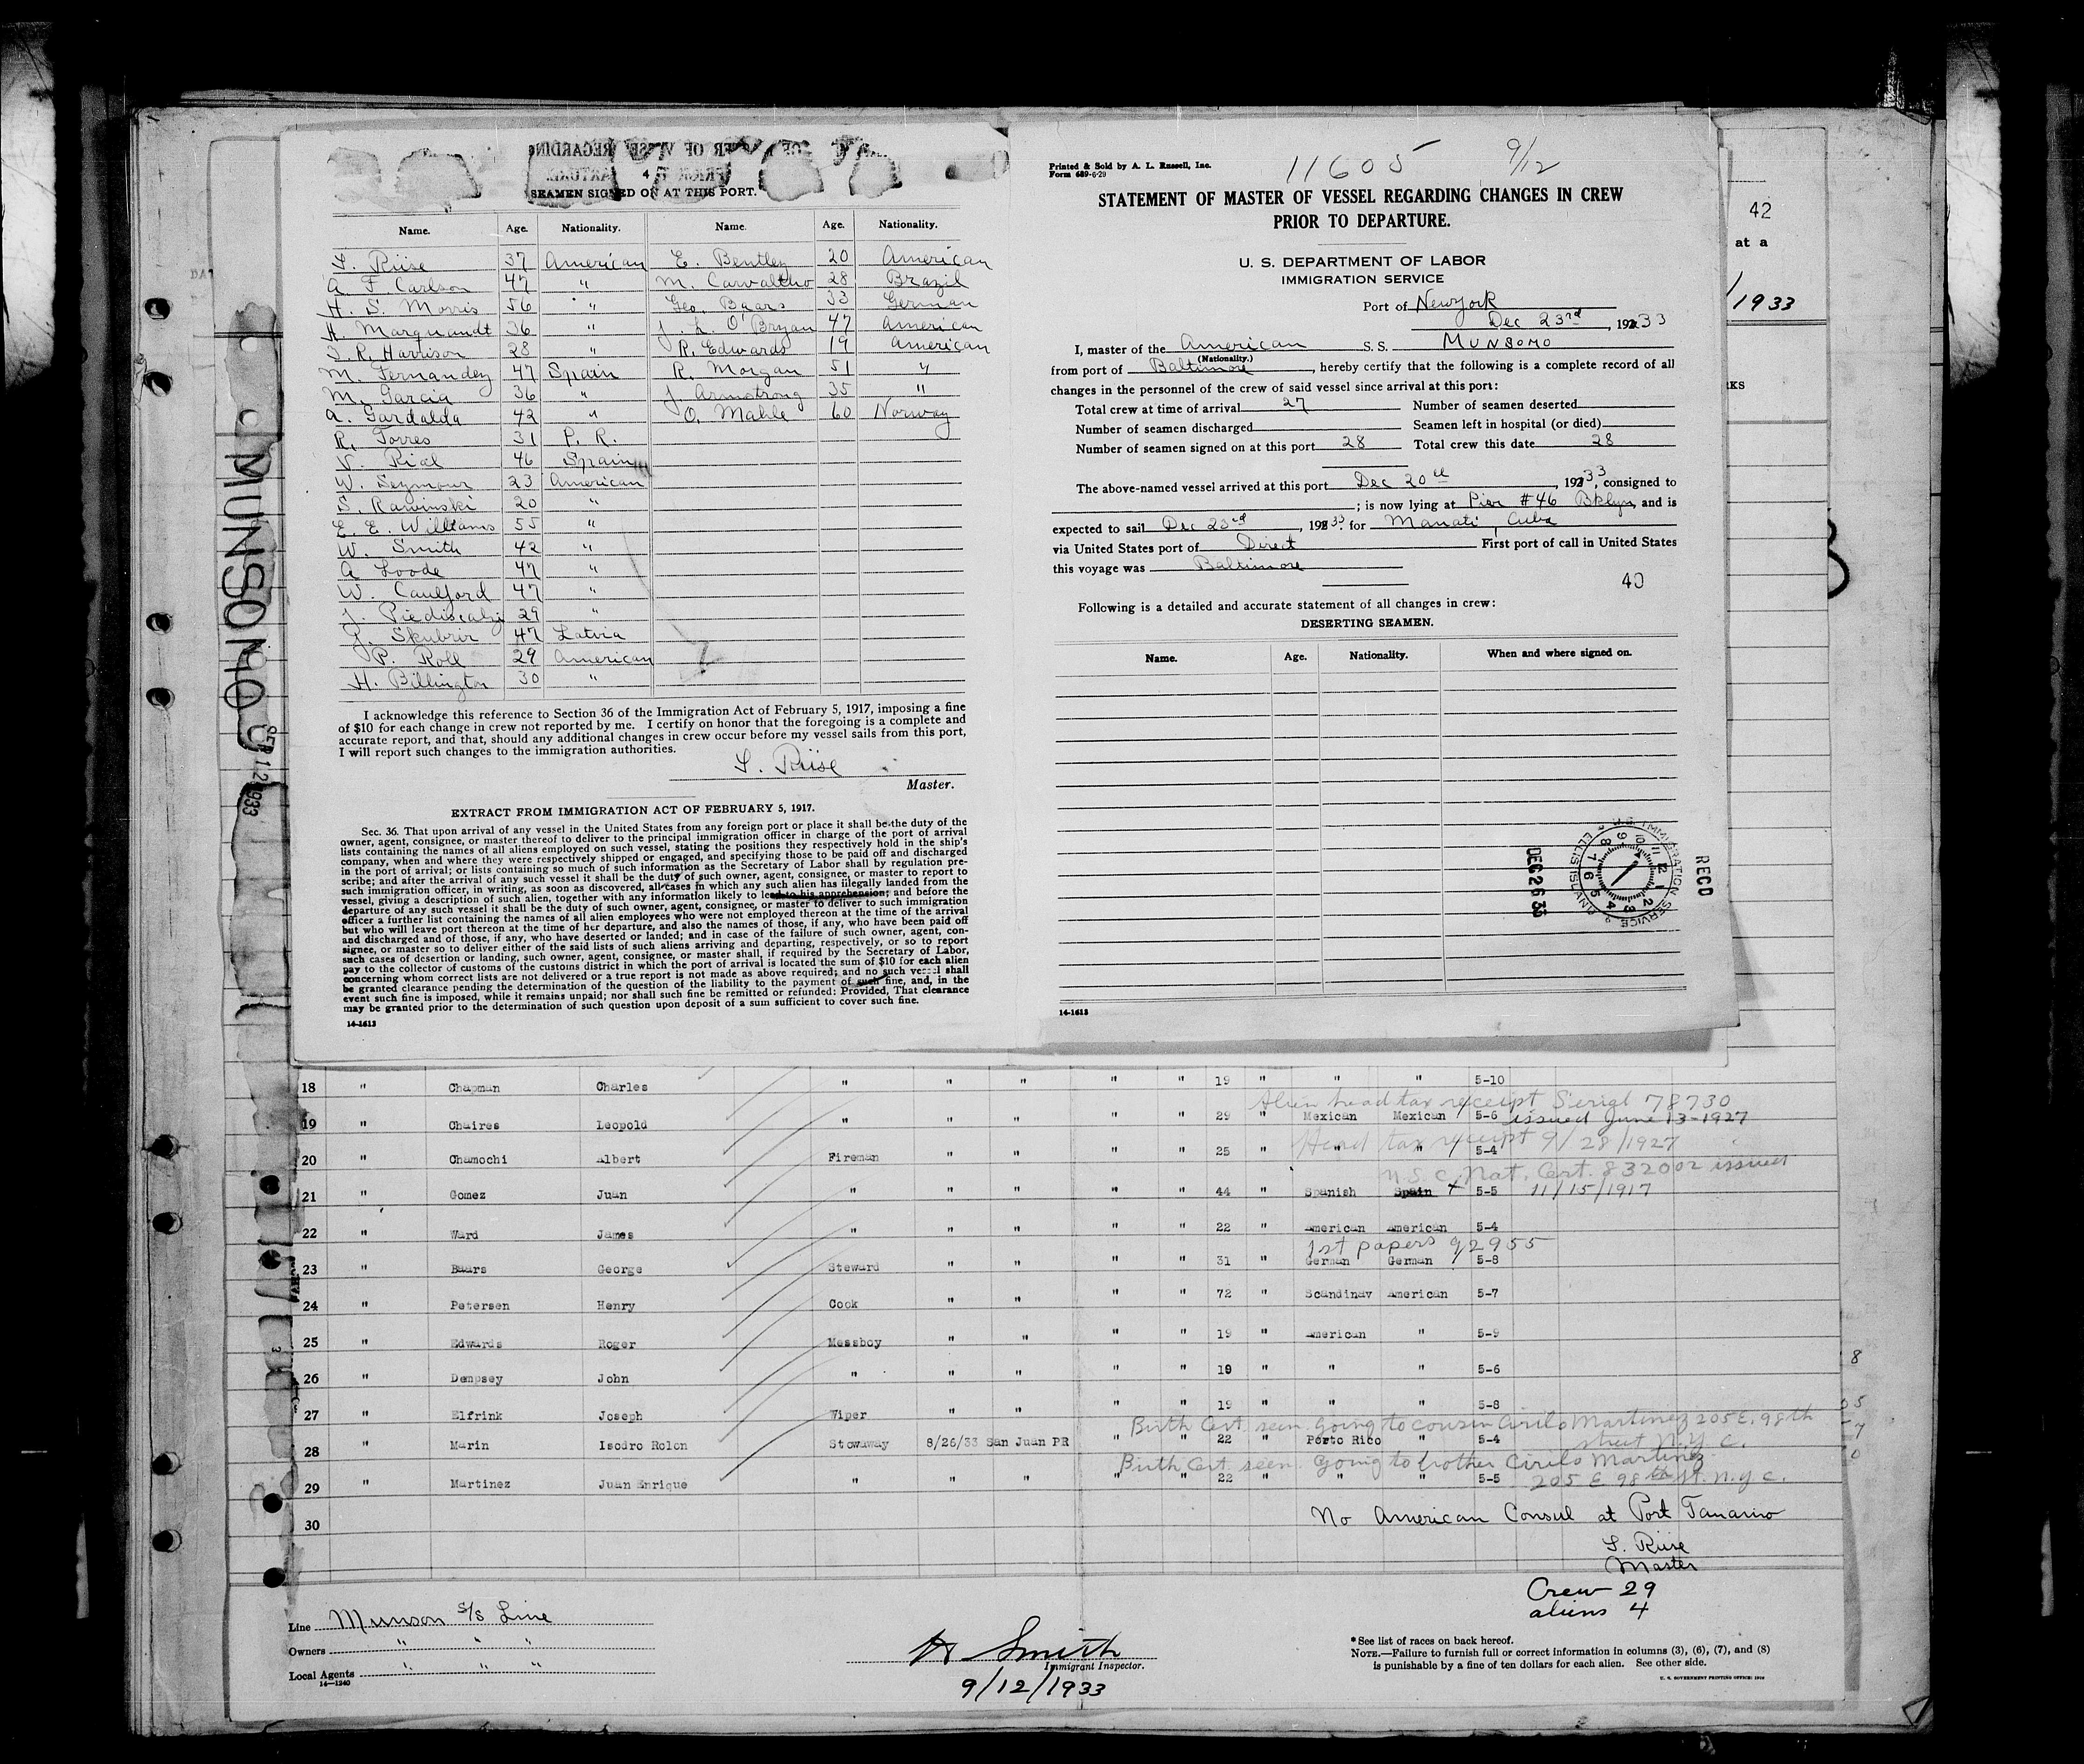 SEAMEN SIGNED ON AT THIS PORT.
Name. Age. Nationality. Name. Age. Nationality.
L. Riise 37 American E. Bentley 20 American
A. F. Carlson 47 " M. Carvaltho 28 Brazil
H. S. Morris 56 " Geo. Baars 33 German
H. Marquandt 36 " J. L. O'Bryan 47 American
J. R. Harrison 28 " R. Edwards 19 American
M. Fernandez 47 Spain R. Morgan 51 "
M. Garcia 36 " J. Armstrong 35 "
A. Gardalda 42 " O. Mahle 60 Norway
R. Torres 31 P. R.
V. Rial 46 Spain
W. Seymour 23 American
S. Rawinski 20 "
E. E. Williams 55 "
W. Smith 42 "
A Loode 47 "
W. Caulford 47 "
J. 29 "
Skubrir 47 Latvia
P. Roll 29 American
H. Billington 30 "
I acknowledge this reference to Section 36 of the Immigration Act of February 5, 1917, imposing a fine
of $10 for each change in crew not reported by me. I certify on honor that the foregoing is a complete and
accurate report, and that, should any additional changes in crew occur before my vessel sails from this port,
I will report such changes to the immigration authorities.
L. Riise
Master.
EXTRACT FROM IMMIGRATION ACT OF FEBRUARY 5, 1917.
Sec. 36. That upon arrival of any vessel in the United States from any foreign port or place it shall be the duty of the
owner, agent, consignee, or master thereof to deliver to the principal immigration officer in charge of the port of arrival
lists containing the names of all aliens employed on such vessel, stating the positions they respectively hold in the ship's
company, when and where they were respectively shipped or engaged, and specifying those to be paid off and discharged
in the port of arrival; or lists containing so much of such information as the Secretary of Labor shall by regulation pre-
scribe; and after the arrival of any such vessel it shall be the duty of such owner, agent, consignee, or master to report to
such immigration officer, in writing, as soon as discovered, all cases in which any such alien has illegally landed from the
vessel, giving a description of such alien, together with any information likely to lead to his apprehension; and before the
departure of any such vessel it shall be the duty of such owner, agent, consignee, or master to deliver to such immigration
officer a further list containing the names of all alien employees who were not employed thereon at the time of the arrival
but who will leave port thereon at the time of her departure, and also the names of those, if any, who have been paid off
and discharged and of those, if any, who have deserted or landed; and in case of the failure of such owner, agent, con-
signee, or master so to deliver either of the said lists of such aliens arriving and departing, respectively, or so to report
such cases of desertion or landing, such owner, agent, consignee, or master shall, if required by the Secretary of Labor,
pay to the collector of customs of the customs district in which the port of arrival is located the sum of $10 for each alien
concerning whom correct lists are not delivered or a true report is not made as above required; and no such vessel shall
be granted clearance pending the determination of the question of the liability to the payment of such fine, and, in the
event such fine is imposed, while it remains unpaid; nor shall such fine be remitted or refunded: Provided, That clearance
may be granted prior to the determination of such question upon deposit of a sum sufficient to cover such fine.
14-1613
Printed & Sold by A. L. Russell, Inc.
Form 689-6-29
11605 9/12
STATEMENT OF MASTER OF VESSEL REGARDING CHANGES IN CREW
PRIOR TO DEPARTURE.
U. S. DEPARTMENT OF LABOR
IMMIGRATION SERVICE
Port of New York
Dec 23rd, 1933
I, master of the American S.S. MUNSOMO
(Nationality.)
from port of Baltimore, hereby certify that the following is a complete record of all
changes in the personnel of the crew of said vessel since arrival at this port:
Total crew at time of arrival 27 Number of seamen deserted
Number of seamen discharged Seamen left in hospital (or died)
Number of seamen signed on at this port 28 Total crew this date 28
The above-named vessel arrived at this port Dec 20th, 1933, consigned to
; is now lying at Pier #46 Bklyn, and is
expected to sail Dec 23rd, 1933 for Manati, Cuba
via United States port of Direct First port of call in United States
this voyage was Baltimore
40
Following is a detailed and accurate statement of all changes in crew:
DESERTING SEAMEN.
Name. Age. Nationality. When and where signed on.
DEC 26 33
U.S. IMMIGRATION SERVICE ELLIS ISLAND
RECD
14-1613
42
at a
1933
MUNSOMO
SEP 12 1933
18 " Chapman Charles " " " " " 19 " " " 5-10
Alien head tax receipt Serial 78730
19 " Chaires Leopold " " " " " 29 " Mexican Mexican 5-6 issued June 13-1927
Head tax receipt 9/28/1927
20 " Chamochi Albert Fireman " " " " 25 " " " 5-4
U.S.C. Nat. Cert. 832002 issued
21 " Gomez Juan " " " " " 44 " Spanish Spain 5-5 11/15/1917
22 " Ward James " " " " " 22 " American American 5-4
1st papers 92955
23 " Baars George Steward " " " " 31 " German German 5-8
24 " Petersen Henry Cook " " " " 72 " Scandinav American 5-7
25 " Edwards Roger Messboy " " " " 19 " American " 5-9
26 " Dempsey John " " " " " 19 " " " 5-6
27 " Elfrink Joseph Wiper " " " " 19 " " " 5-8
Birth Cert. seen. Going to cousin Cirilo Martinez 205 E. 98th
28 " Marin Isodro Rolon Stowaway 8/26/33 San Juan PR " " 22 " Porto Rico " 5-4 street N.Y.C.
Birth Cert. seen. Going to brother Cirilo Martinez
29 " Martinez Juan Enrique " " " " " 22 " " " 5-5 205 E 98th St. N.Y.C.
30 No American Consul at Port Tanamo
L. Riise
Master
Crew 29
aliens 4
Line Munson S/S Line
Owners " " "
Local Agents " " "
14-1240
H Smith
Immigrant Inspector.
9/12/1933
*See list of races on back hereof.
NOTE.—Failure to furnish full or correct information in columns (3), (6), (7), and (8)
is punishable by a fine of ten dollars for each alien. See other side.